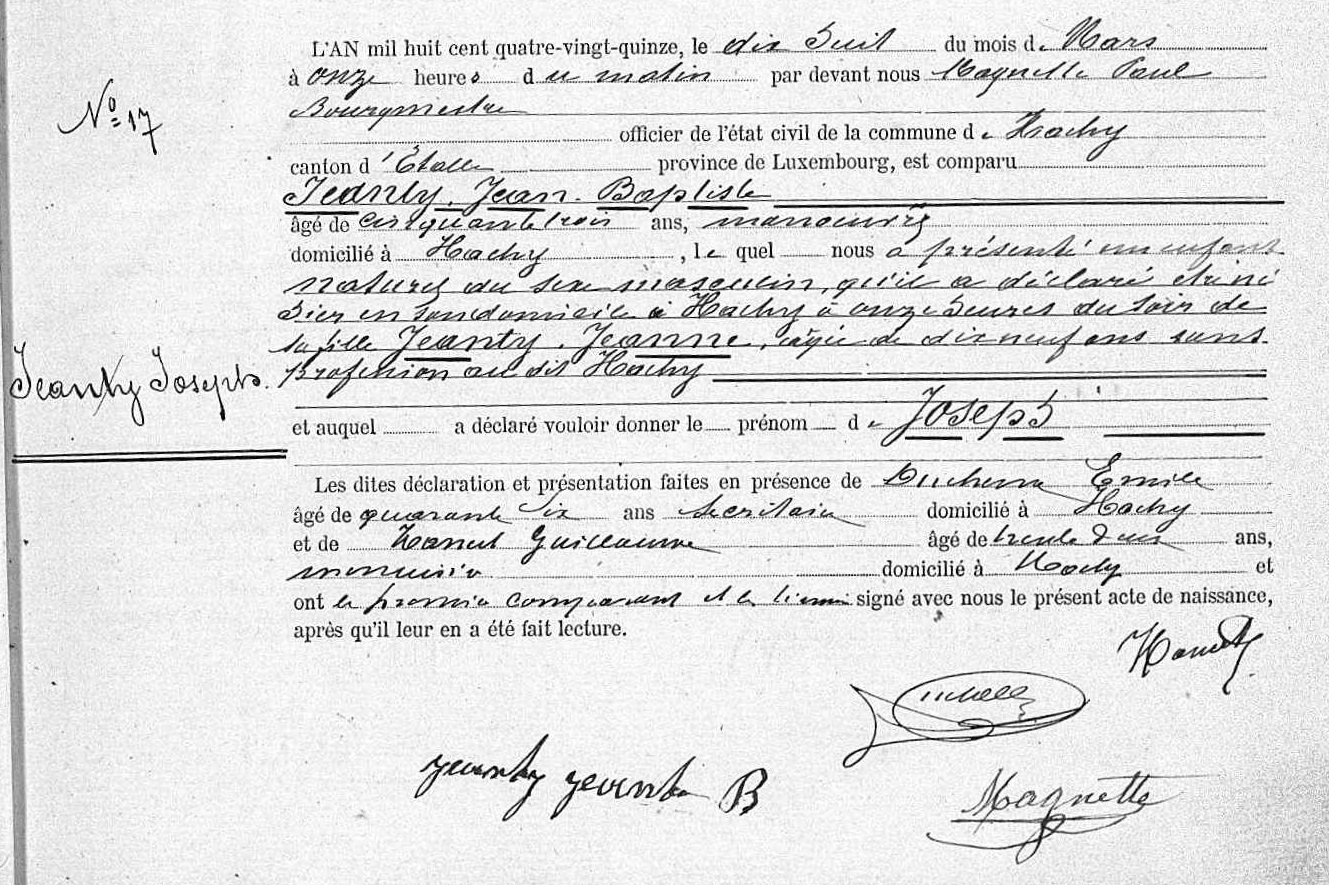 L'AN mil huit cent quatre-vingt-quinze, le dix huit du mois de Mars
à onze heures du matin par devant nous Magnette Paul
Bourgmestre
officier de l'état civil de la commune de Hachy
canton d'Etalle province de Luxembourg, est comparu
Jeanty, Jean-Baptiste
âgé de cinquante trois ans, manoeuvre
domicilié à Hachy, le quel nous a présenté un enfant
naturel du sexe masculin, qu'il a déclaré être né
hier en son domicile à Hachy à onze heures du soir de
sa fille Jeanty, Jeanne, âgée de dix neuf ans sans
profession au dit Hachy
N° 17
Jeanty Joseph.
et auquel a déclaré vouloir donner le prénom de Joseph
Les dites déclaration et présentation faites en présence de Emile
âgé de quarante six ans secrétaire domicilié à Hachy
et de Guillaume âgé de trente deux ans,
menuisier domicilié à Hachy et
ont le premier comparant et les témoins signé avec nous le présent acte de naissance,
après qu'il leur en a été fait lecture.
jeanty jean B
Magnette